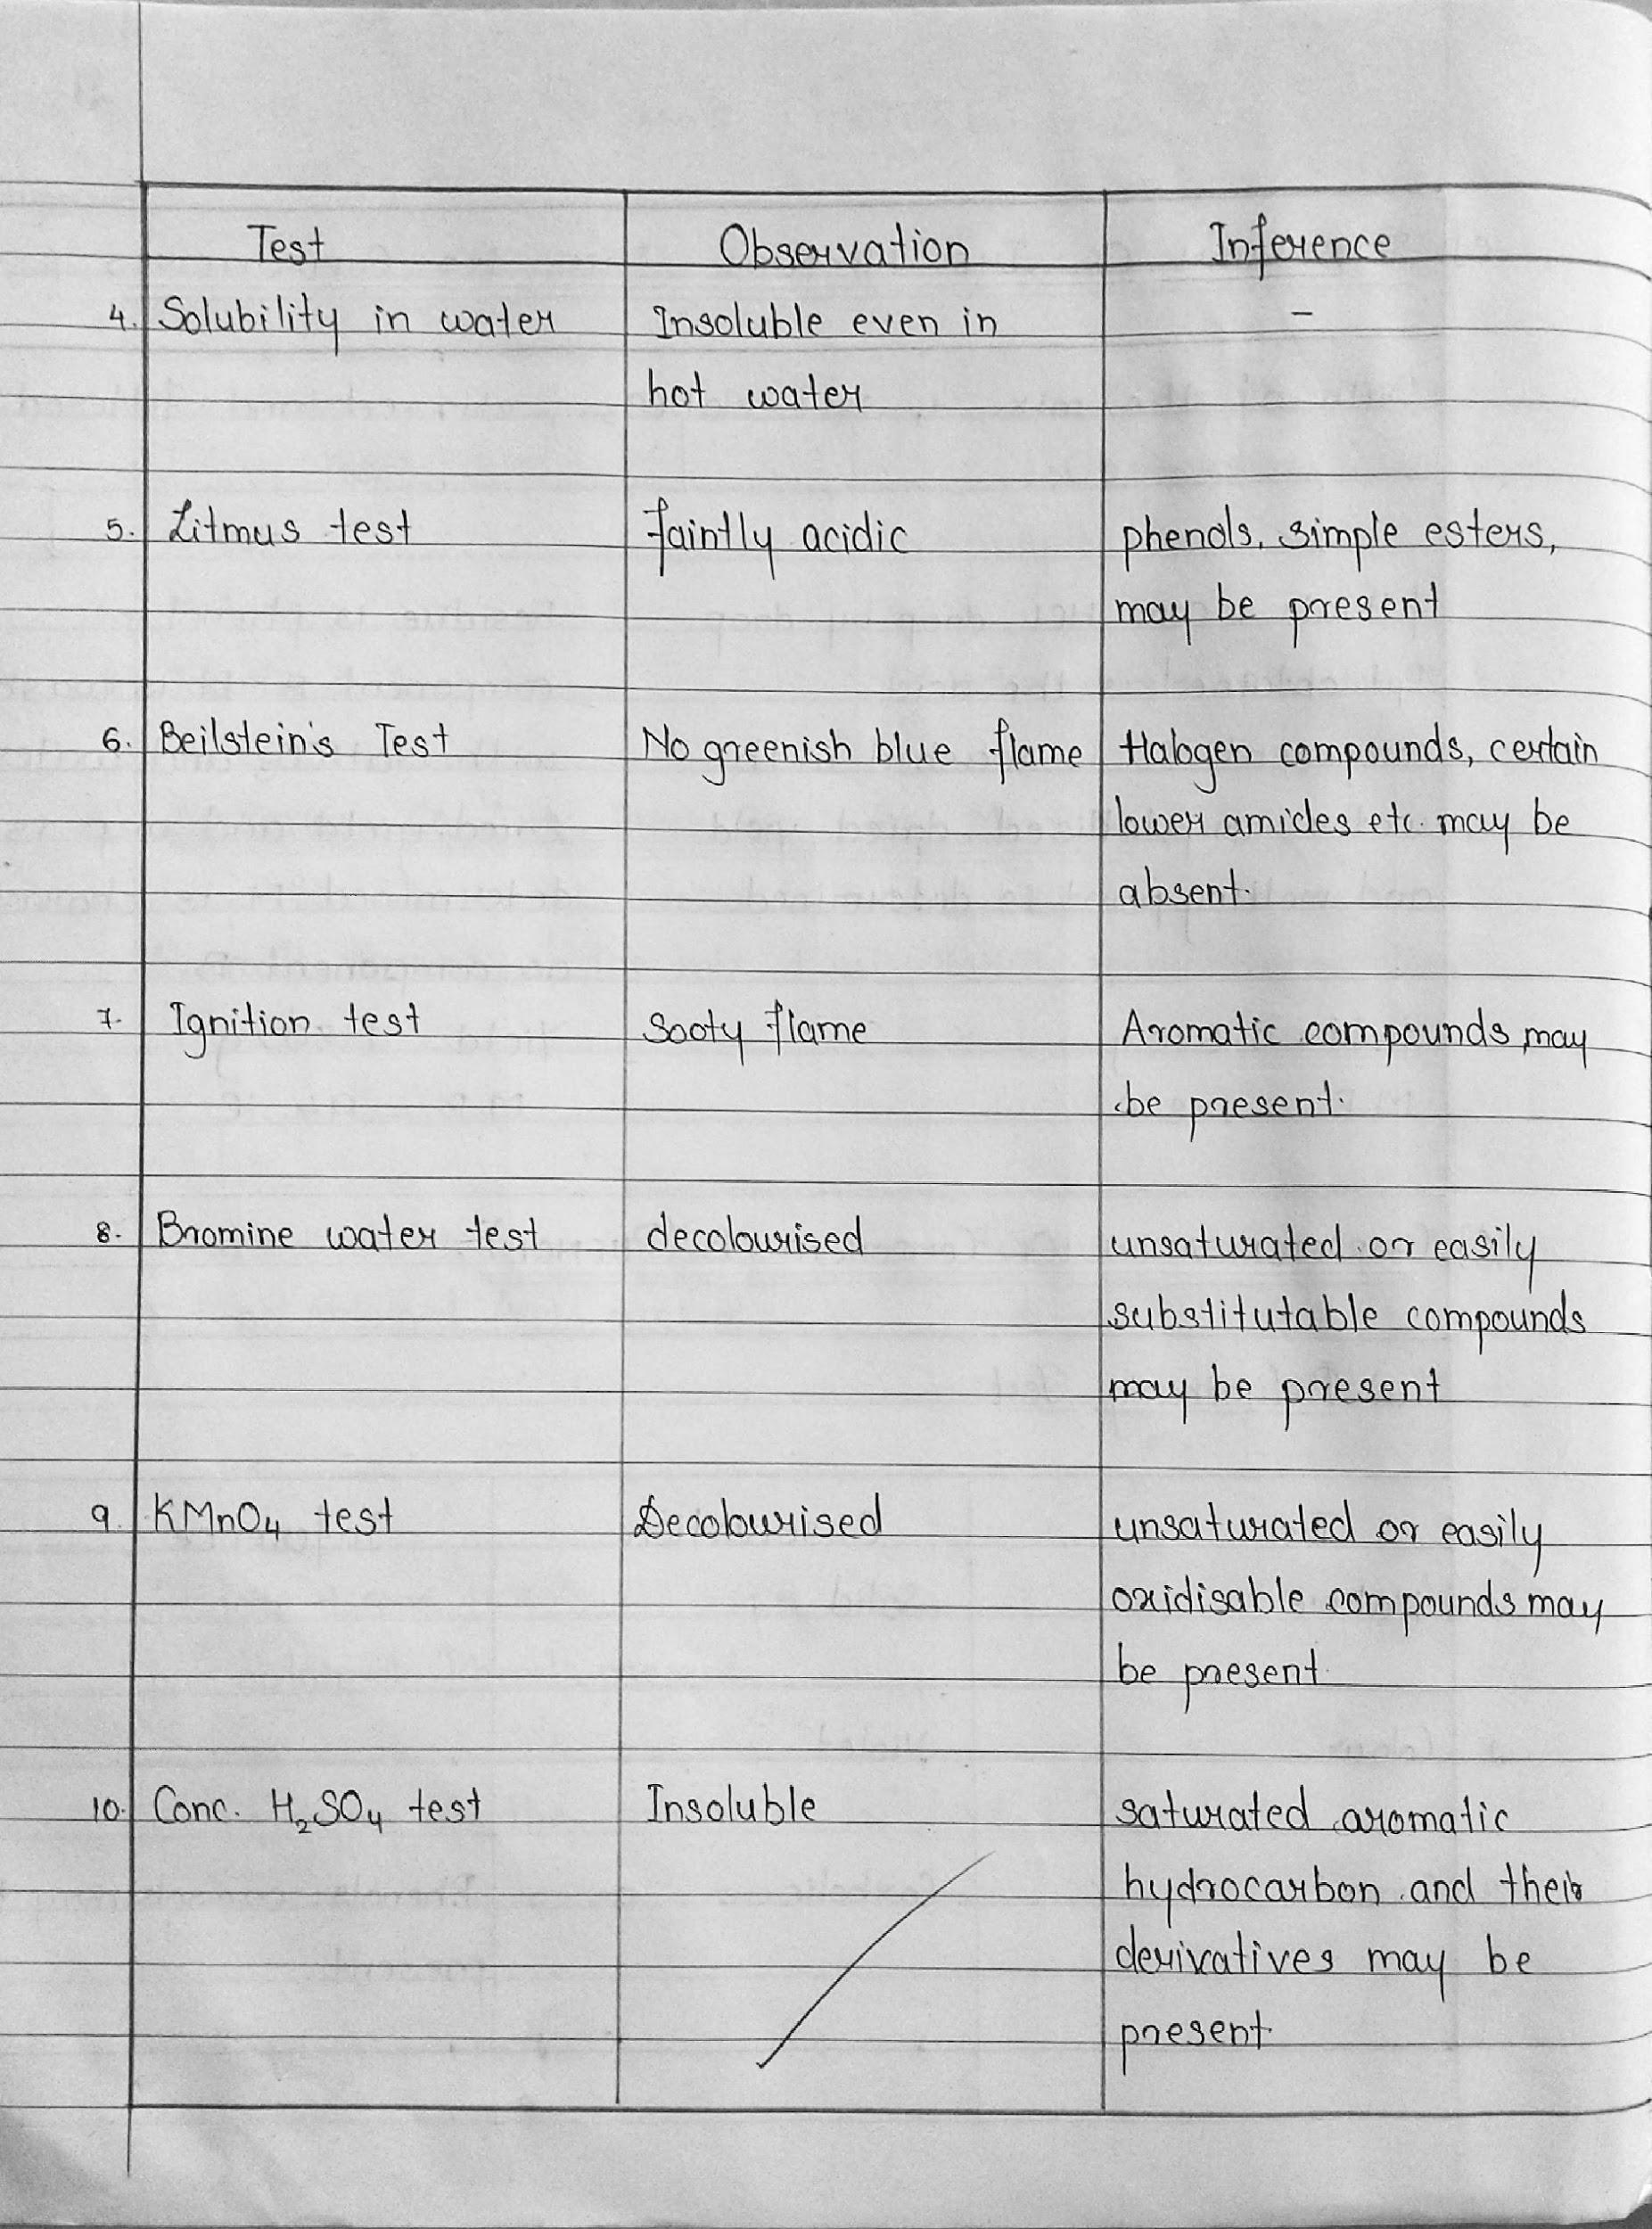 Test Observation Inference
4. Solubility in water Insoluble even in -
hot water
5. Litmus test faintly acidic phenols, simple esters,
may be present
6. Beilstein's Test No greenish blue flame Halogen compounds, certain
lower amides etc. may be
absent.
7. Ignition test Sooty flame Aromatic compounds may
be present.
8. Bromine water test decolourised unsaturated or easily
substitutable compounds
may be present
9. KMnO4 test Decolourised unsaturated or easily
oxidisable compounds may
be present.
10. Conc. H₂SO4 test Insoluble saturated aromatic
hydrocarbon and their
derivatives may be
present.